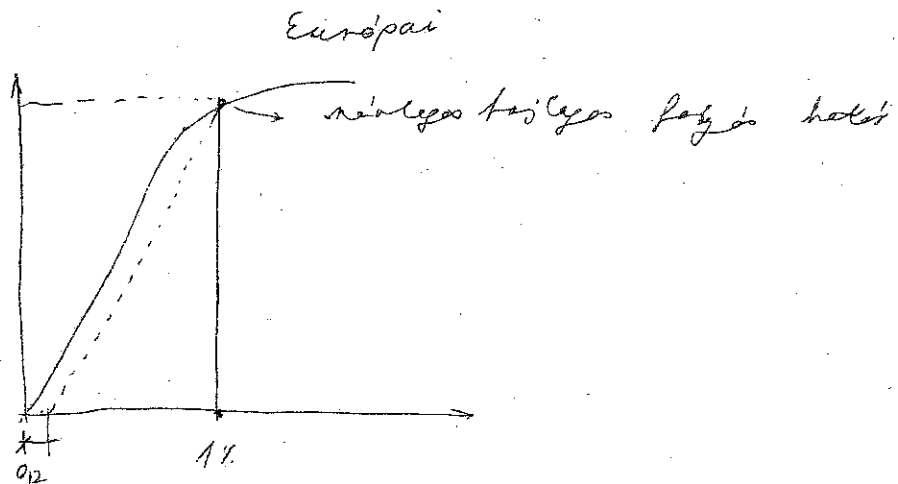 Európai
névleges fajlagos folyás határ
0,2
1%